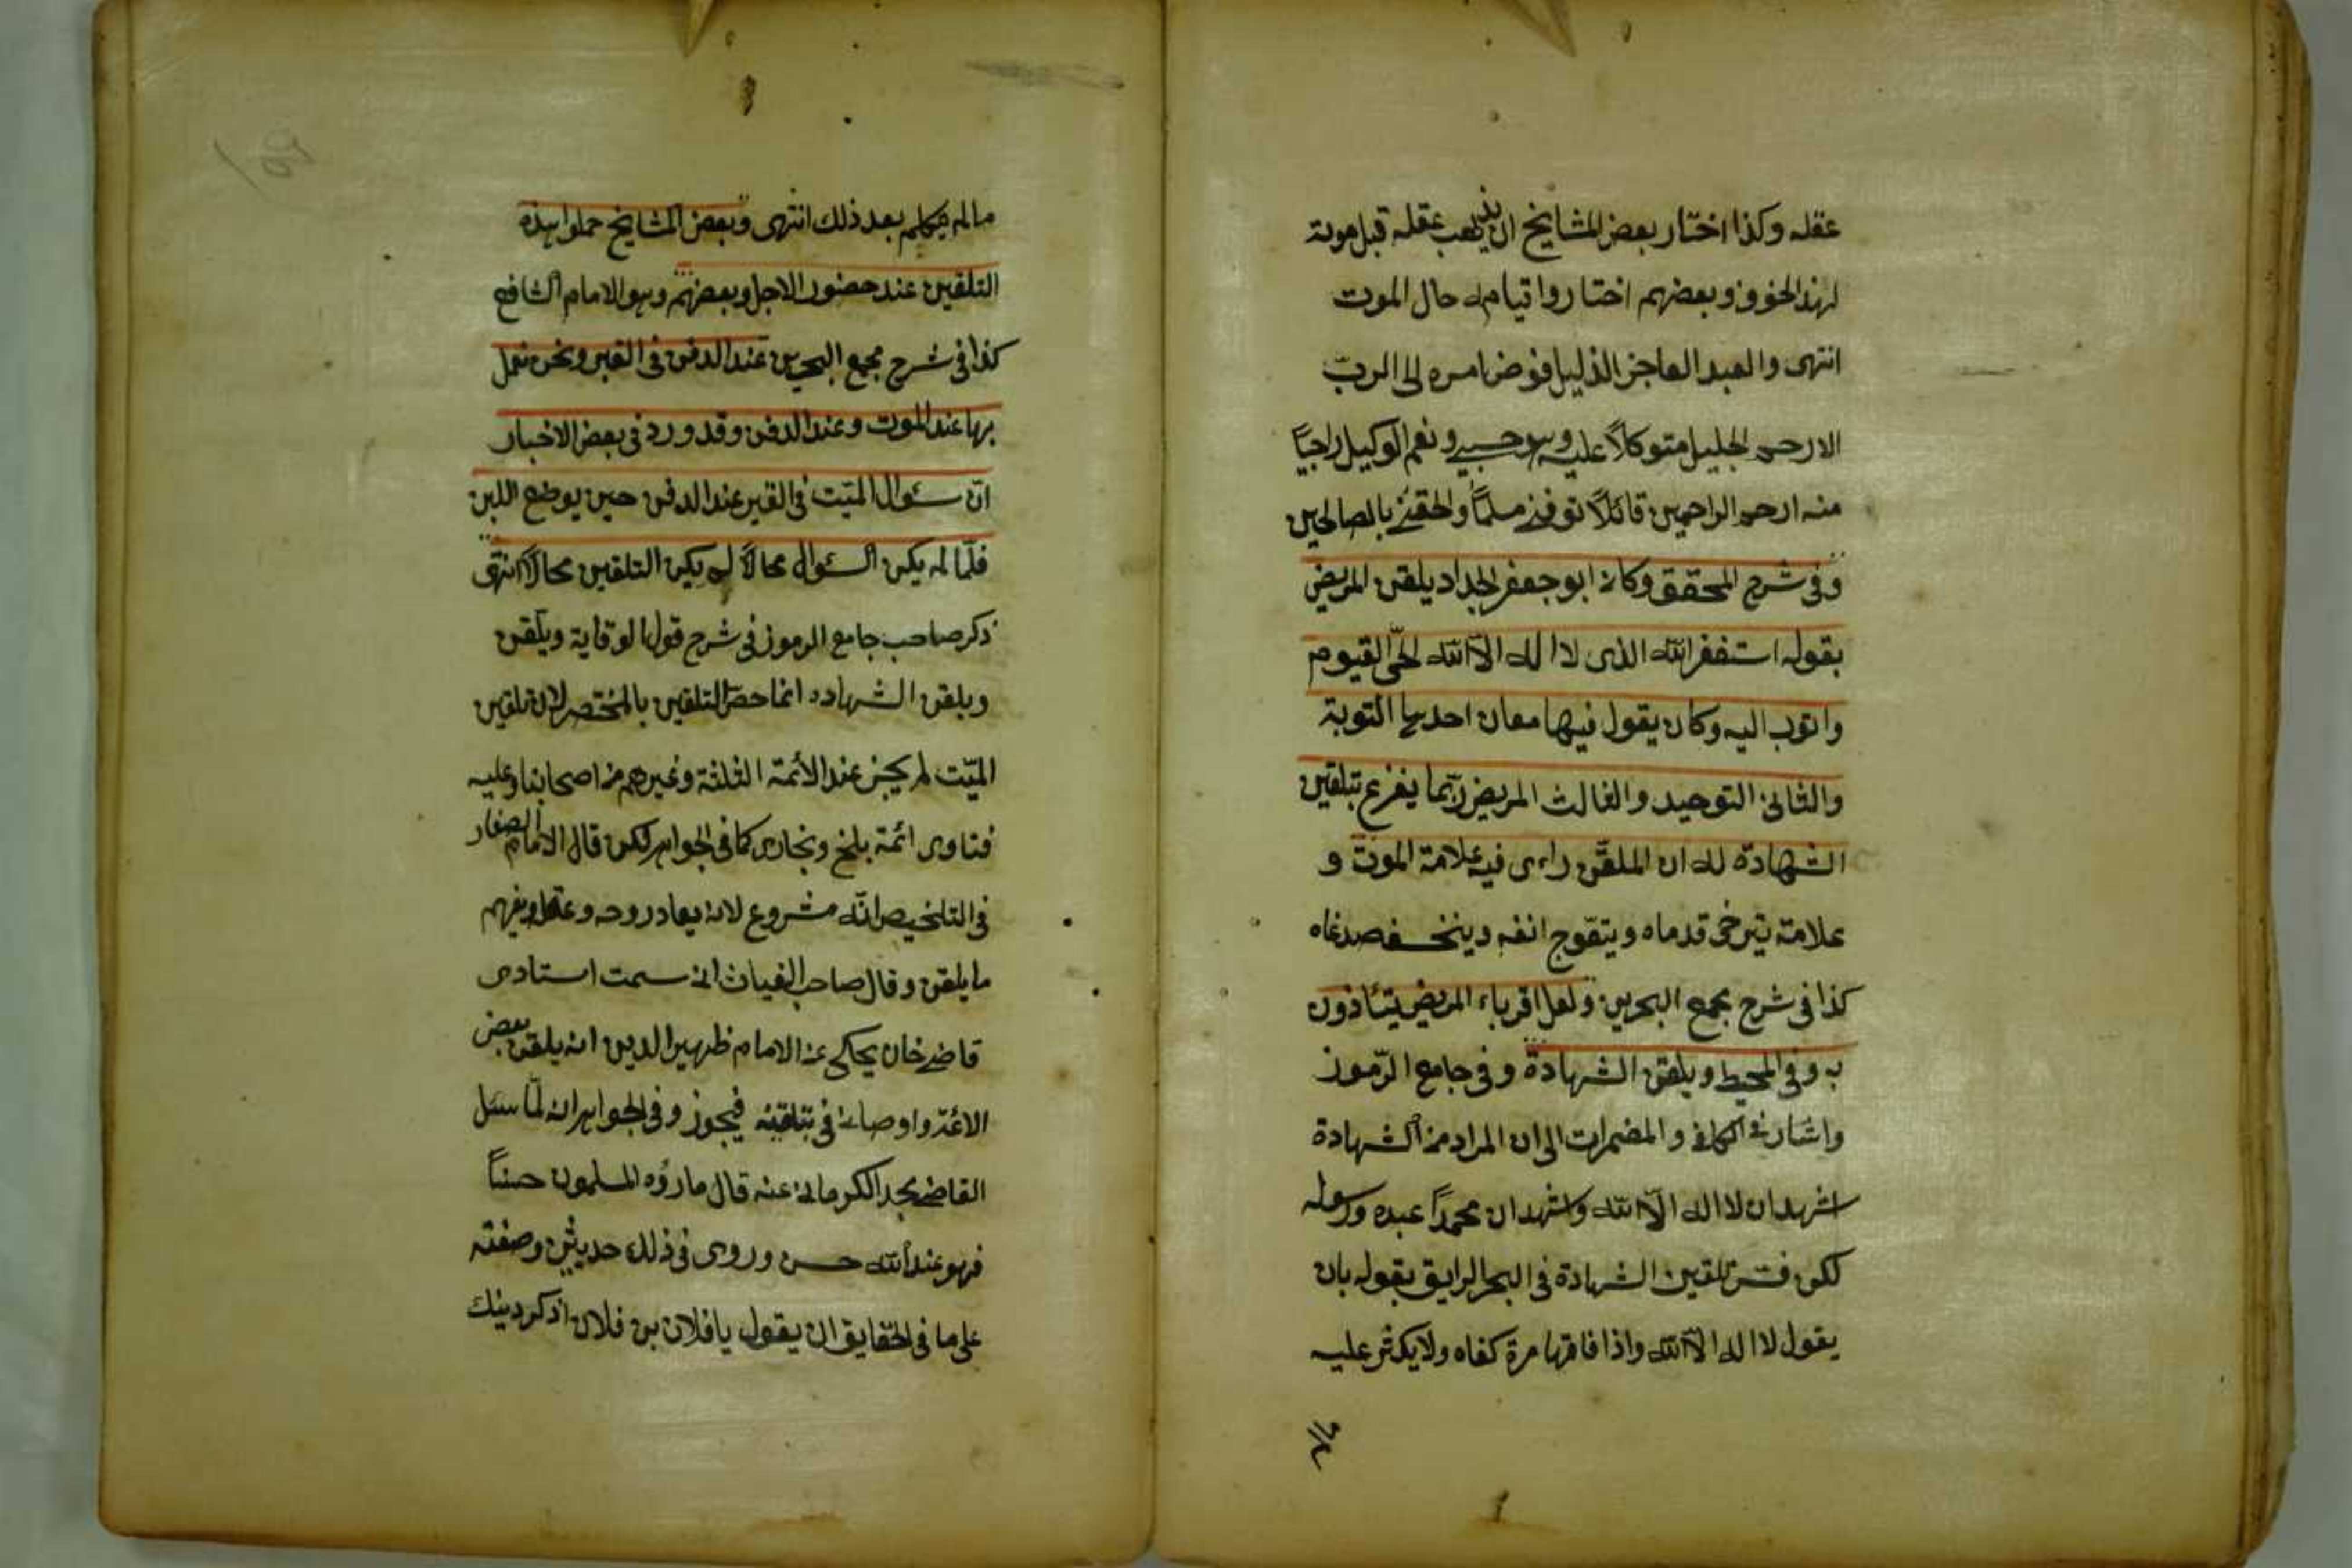 عقله وكذا اختار بعض المشايخ ان يذهب عقله قبل موته
لهذا الخوف وبعضهم اختاروا قيامه حال الموت
انتهى والعبد العاجز الذليل فوض امره الى الربّ
الارحم الجليل متوكلاً عليه وهو حسبي ونعم الوكيل راجيًا
منه ارحم الراحمين قائلاً توفني مسلمًا والحقني بالصالحين
وفى شرح المحقق وكان ابو جعفر الحداد يلقن المريض
بقوله استغفر الله الذى لا اله الّا الله الحيّ القيوم
واتوب اليه وكان يقول فيها معان احديها التوبة
والثانى التوحيد والثالث المريض ربّما يفزع بتلقين
الشهادة له ان الملقّن راى فيه علامة الموت و
علامته يترخى قدماه ويتعّوج انفه وينخسف صدغاه
كذا فى شرح مجمع البحرين ولعل اقرباء المريض يتأذون
به وفى المحيط ويلقن الشهادة وفى جامع الرّموز
واشار فى الكافى و المضمرات الى ان المراد من الشهادة
اشهد ان لا اله الّا الله واشهد ان محمدًا عبده ورسوله
لكن فسّر تلقين الشهادة فى البحر الرايق بقوله بان
يقول لا اله الّا الله واذا قالها مرة كفاه ولا يكثر عليه
مالم يتكلم بعد ذلك انتهى وبعض المشايخ حملوا هذه
التلقين عند حضور الاجل وبعضهم وهو الامام الشافع
كذا فى شرح مجمع البحرين عند الدفن فى القبر ونحن نعمل
بها عند الموت وعند الدفن وقد ورد فى بعض الاخبار
انّ سئوال الميّت فى القبر عند الدفن حين يوضع اللبن
فلمّا لم يكن السئوال محالاً لم يكن التلقين محالاً انتهى
ذكر صاحب جامع الرموز فى شرح قول الوقاية ويلّقن
ويلقن الشهاده انما خصّ التلقين بالمختصر لان تلقين
الميّت لم يجز عند الأئمة الثلثة وغيرهم من اصحابنا وعليه
فتاوى ائمة بلخ وبخارى كما فى الجواهر لكن قال الامام الصفار
فى التلخيص انّه مشروع لانه يعاد روحه وعقله ويفهم
ما يلقن وقال صاحب الغياث انى سمعت استادى
قاضى خان يحاكى عن الامام ظهير الدين انه يلقن بعض
الائمّة واوصانى فى تلقينه فيجوز وفى الجواهر انه لمّا سئل
القاضى مجد الكرمانى عنه قال ما رؤه المسلمون حسنًا
فهو عند الله حسن وروى فى ذلك حديثين وصفته
على ما فى الحقايق ان يقول يا فلان بن فلان اذكر دينك